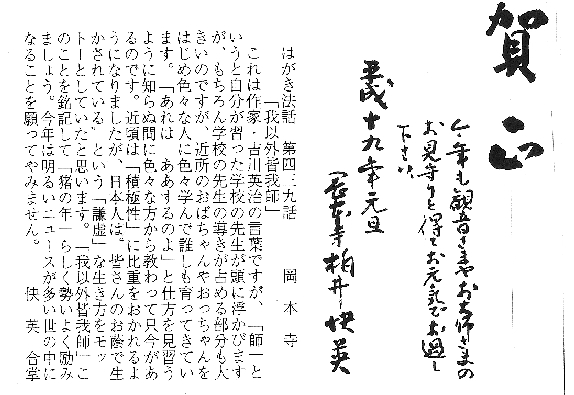 賀正
今年も観音さまやお大師さまの
お見守りを得てお元気でお過し
下さい
平成十九年元旦
岡本寺 柏井快英
はがき法話 第四三九話 岡本寺
「我以外皆我師」
これは作家・吉川英治の言葉ですが、「師」と
いうと自分が習った学校の先生が頭に浮かびます
が、もちろん学校の先生の導きが占める部分も大
きいのですが、近所のおばちゃんやおっちゃんを
はじめ色々な人に色々学んで誰しも育ってきてい
ます。「あれは、ああするのよ」と仕方を見習う
ように知らぬ間に色々な方から教わって只今があ
るのです。近頃は「積極性」に比重をおかれるよ
うになりましたが、日本人は。皆さんのお蔭で生
かされている〟という「謙虚」な生き方をモッ
トーとしていたと思います。「我以外皆我師」こ
のことを銘記して「猪の年」らしく勢いよく励み
ましょう。今年は明るいニュースが多い世の中に
なることを願ってやみません。 快英 合掌